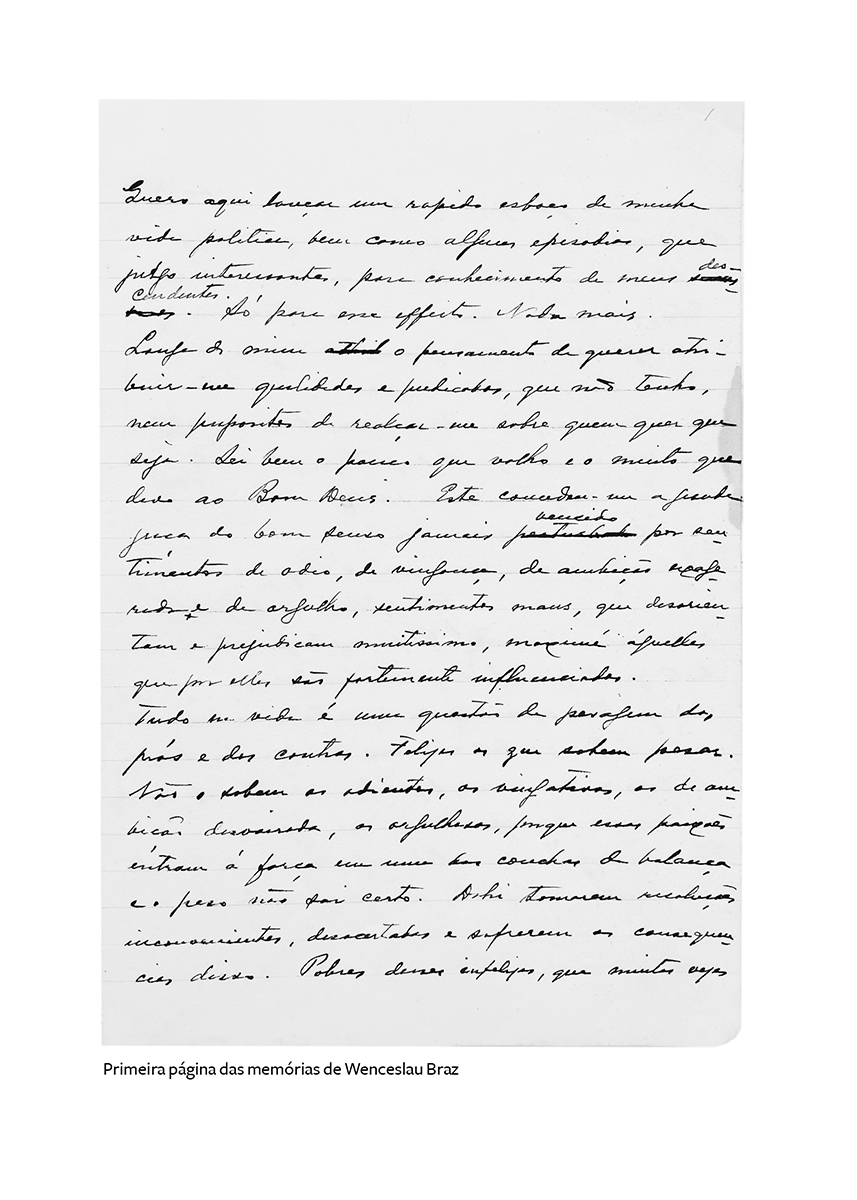 1
Quero aqui lançar um rapido esboço de minha
vida politica, bem como alguns episodios, que
julgo interessantes, para conhecimento de meus des-
cendentes. Só para esse effeito. Nada mais.
Longe de mim o pensamento de querer attri-
buir-me qualidades e predicados, que não tenho,
nem propositos de realçar-me sobre quem quer que
seja. Sei bem o pouco que valho e o muito que
devo ao Bom Deus. Este concedeu-me a grande
graça do bom senso jamais vencido por sen-
timentos de odio, de vingança, de ambição exage-
rada e de orgulho, sentimentos maus, que desorien-
tam e prejudicam muitissimo, maximé áquelles
que por elles são fortemente influenciados.
Tudo na vida é uma questão de pesagem dos
prós e dos contras. Felizes os que sabem pesar.
Não o sabem os odientos, os vingativos, os de am-
bição desvairada, os orgulhosos, porque essas paixões
entram á força em uma das conchas da balança
e o peso não sai certo. Dahi tomarem resoluções
inconvenientes, desacertadas e sofrerem as consequen-
cias disso. Pobres desses infelizes, que muitas vezes
Primeira página das memórias de Wenceslau Braz